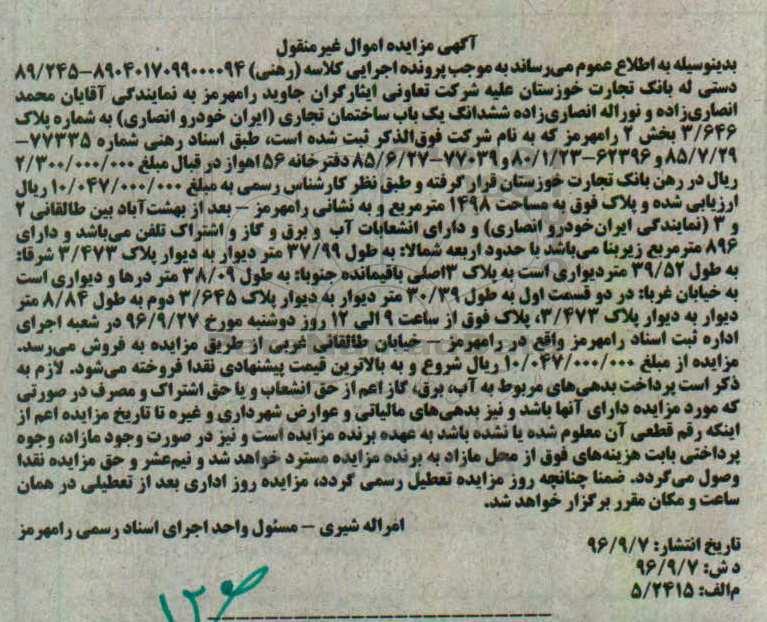 آگهی مزایده اموال غیرمنقول
بدینوسیله به اطلاع عموم می‌رساند به موجب پرونده اجرایی کلاسه (رهنی) ۸۹۰۴۰۱۷۰۹۹۰۰۰۰۹۴–۸۹/۲۴۵
دستی له بانک تجارت خوزستان علیه شرکت تعاونی ایثارگران جاوید رامهرمز به نمایندگی آقایان محمد
انصاری‌زاده و نوراله انصاری‌زاده ششدانگ یک باب ساختمان تجاری (ایران خودرو انصاری) به شماره پلاک
۳/۶۴۶ بخش ۲ رامهرمز که به نام شرکت فوق‌الذکر ثبت شده است، طبق اسناد رهنی شماره ۷۷۳۳۵–
۸۵/۷/۲۹ و ۶۲۳۹۶–۸۰/۱/۲۳ و ۷۷۰۳۹–۸۵/۶/۲۷ دفترخانه ۵۶ اهواز در قبال مبلغ ۲/۳۰۰/۰۰۰/۰۰۰
ریال در رهن بانک تجارت خوزستان قرار گرفته و طبق نظر کارشناس رسمی به مبلغ ۱۰/۰۴۷/۰۰۰/۰۰۰ ریال
ارزیابی شده و پلاک فوق به مساحت ۱۴۹۸ مترمربع و به نشانی رامهرمز – بعد از بهشت‌آباد بین طالقانی ۲
و ۳ (نمایندگی ایران‌خودرو انصاری) و دارای انشعابات آب و برق و گاز و اشتراک تلفن می‌باشد و دارای
۸۹۶ مترمربع زیربنا می‌باشد با حدود اربعه شمالا: به طول ۳۷/۹۹ متر دیوار به دیوار پلاک ۳/۴۷۳ شرقا:
به طول ۳۹/۵۲ متردیواری است به پلاک ۳اصلی باقیمانده جنوبا: به طول ۳۸/۰۹ متر درها و دیواری است
به خیابان غربا: در دو قسمت اول به طول ۳۰/۳۹ متر دیوار به دیوار پلاک ۳/۶۴۵ دوم به طول ۸/۸۴ متر
دیوار به دیوار پلاک ۳/۴۷۳، پلاک فوق از ساعت ۹ الی ۱۲ روز دوشنبه مورخ ۹۶/۹/۲۷ در شعبه اجرای
اداره ثبت اسناد رامهرمز واقع در رامهرمز – خیابان طالقانی غربی از طریق مزایده به فروش می‌رسد.
مزایده از مبلغ ۱۰/۰۴۷/۰۰۰/۰۰۰ ریال شروع و به بالاترین قیمت پیشنهادی نقدا فروخته می‌شود. لازم به
ذکر است پرداخت بدهی‌های مربوط به آب، برق، گاز اعم از حق انشعاب و یا حق اشتراک و مصرف در صورتی
که مورد مزایده دارای آنها باشد و نیز بدهی‌های مالیاتی و عوارض شهرداری و غیره تا تاریخ مزایده اعم از
اینکه رقم قطعی آن معلوم شده یا نشده باشد به عهده برنده مزایده است و نیز در صورت وجود مازاد، وجوه
پرداختی بابت هزینه‌های فوق از محل مازاد به برنده مزایده مسترد خواهد شد و نیم‌عشر و حق مزایده نقدا
وصول می‌گردد. ضمنا چنانچه روز مزایده تعطیل رسمی گردد، مزایده روز اداری بعد از تعطیلی در همان
ساعت و مکان مقرر برگزار خواهد شد.
امراله شیری – مسئول واحد اجرای اسناد رسمی رامهرمز
تاریخ انتشار: ۹۶/۹/۷
د ش: ۹۶/۹/۷
م‌الف: ۵/۲۴۱۵